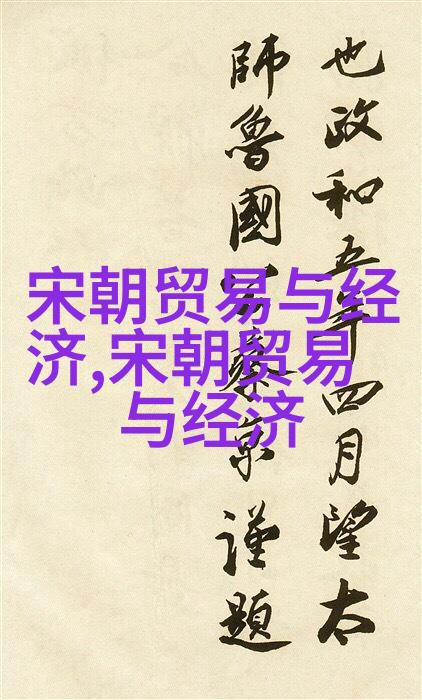 宋朝贸易与经
济,宋朝贸易
与经济
也政和五年四月望太
師魯國公蔡京謹題